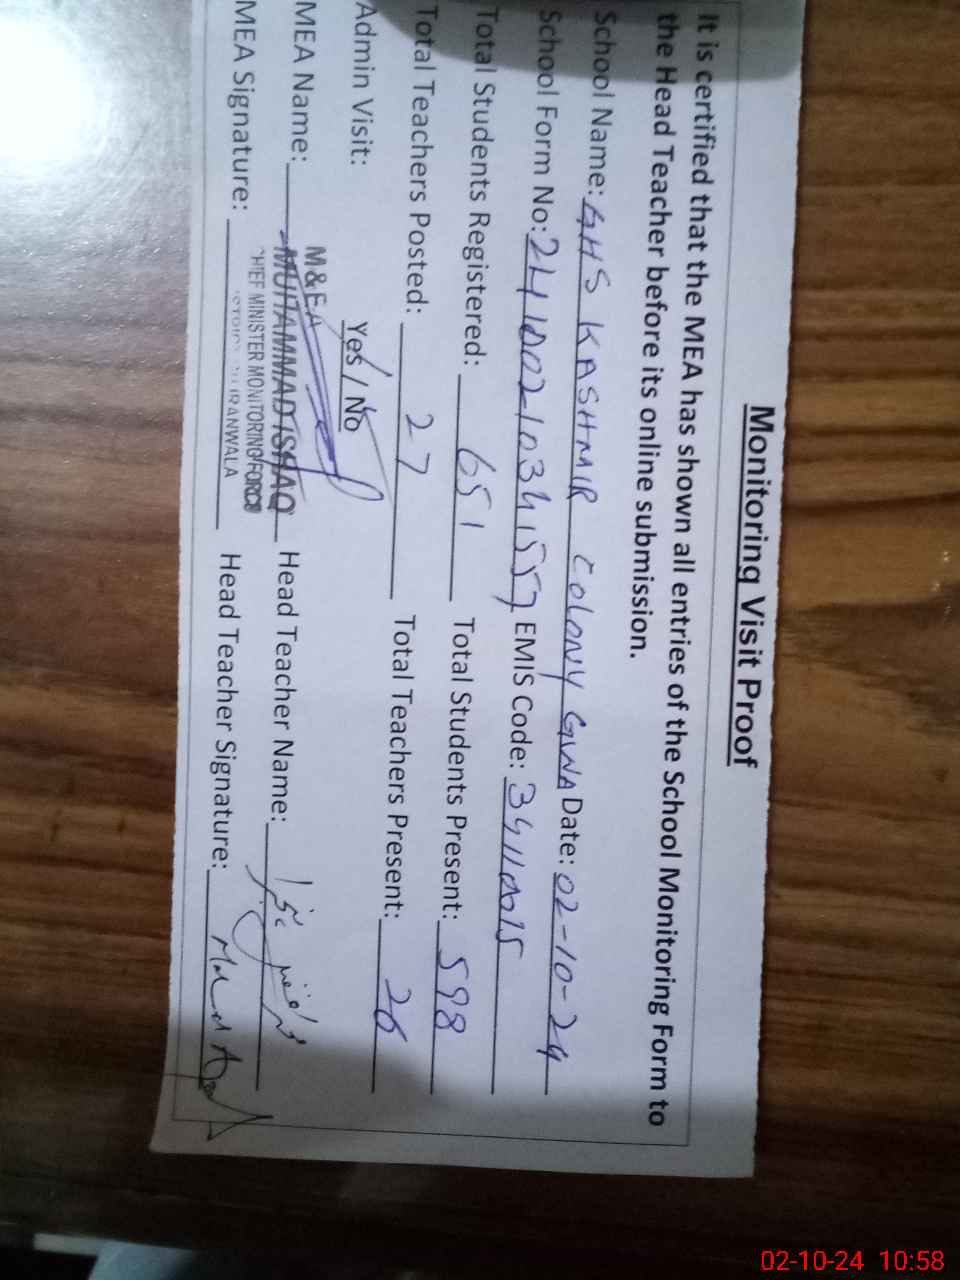 Monitoring Visit Proof
It is certified that the MEA has shown all entries of the School Monitoring Form to
the Head Teacher before its online submission.
School Name: GHS KASHMIR COLONY GWA Date: 02-10-24
School Form No: EMIS Code: 34110015
Total Students Registered: 651 Total Students Present: 598
Total Teachers Posted: 27 Total Teachers Present: 26
Admin Visit: Yes / No
M&EA
MEA Name: MUHAMMAD ISHAQ Head Teacher Name:
CHIEF MINISTER MONITORING FORCE
MEA Signature: Head Teacher Signature:
02-10-24 10:58